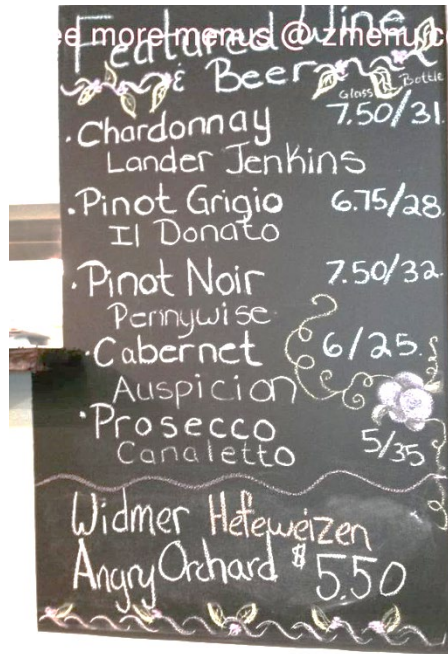 ee more menus @ zmenu.c
Featured Wine
& Beer
Glass Bottle
·Chardonnay 7.50/31.
Lander Jenkins
·Pinot Grigio 6.75/28.
Il Donato
·Pinot Noir 7.50/32.
Pennywise
·Cabernet 6/25.
Auspicion
·Prosecco 5/35
Canaletto
Widmer Hefeweizen
Angry Orchard $5.50